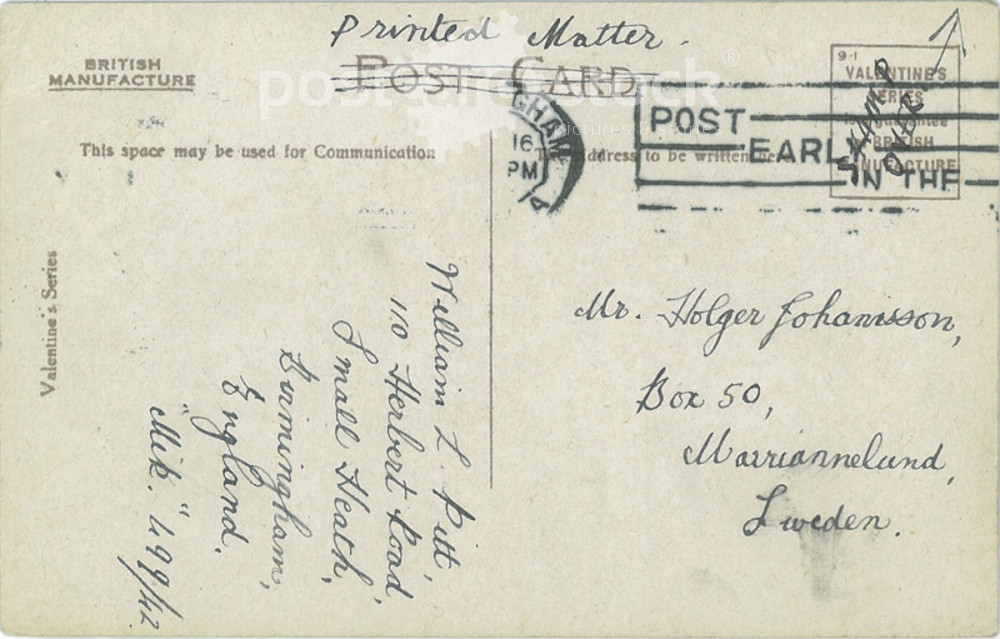 Printed Matter.
BRITISH
MANUFACTURE
POST CARD
postcardstock®
pictures
This space may be used for Communication
The Address to be written here
GHAM
16
PM
A
POST
EARLY
IN THE
9-1
VALENTINE'S
SERIES
guarantee
BRITISH
MANUFACTURE
STAMP
OVER.
Valentine's Series
William L. Pitt,
110 Herbert Road,
Small Heath,
Birmingham,
England.
"Mik." 499/42.
Mr. Holger Johansson,
Box 50,
Mariannelund,
Sweden.